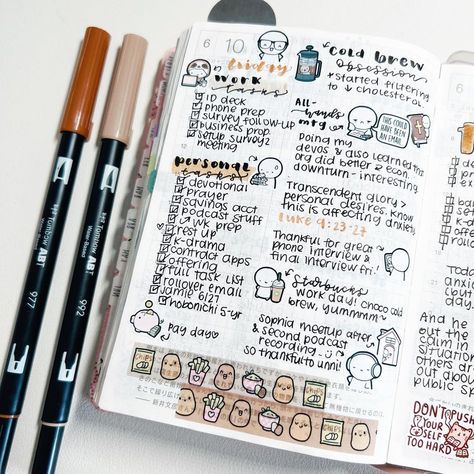 6
10
friday
work
tasks
ID deck
phone prep
survey follow-up
business prop.
setup survey2
meeting
personal
tasks
devotional
prayer
savings acct
podcast stuff
wk prep
rest up
k-drama
contract apps
offering
full task list
rollover email
jamie 6/27
hobonichi 5-yr
pay day♡
cold brew
obsession
+ started filtering
to ↓ cholesterol
All-
hands
mtg
THIS COULD
HAVE BEEN
AN EMAIL
Doing my
devos & also learned the
org did better @ econ.
downturn - interesting
Transcendent glory >
personal desires. Know
this is affecting anxiety
Luke 9:23-27
Thankful for great
phone Interview &
final Interview fri!
Starbucks
work day! choco cold
brew, yummmm
sophia meetup after
& second podcast
recording
so thankful to unni!
CHIPS
CHIPS
CHIPS
DON'T PUSH
YOURSELF
TOO HARD
6
Today
And he
out the
calm in
situation
others
out good
public sp
977
Tombow ABT
992
Tombow ABT
Water-Based